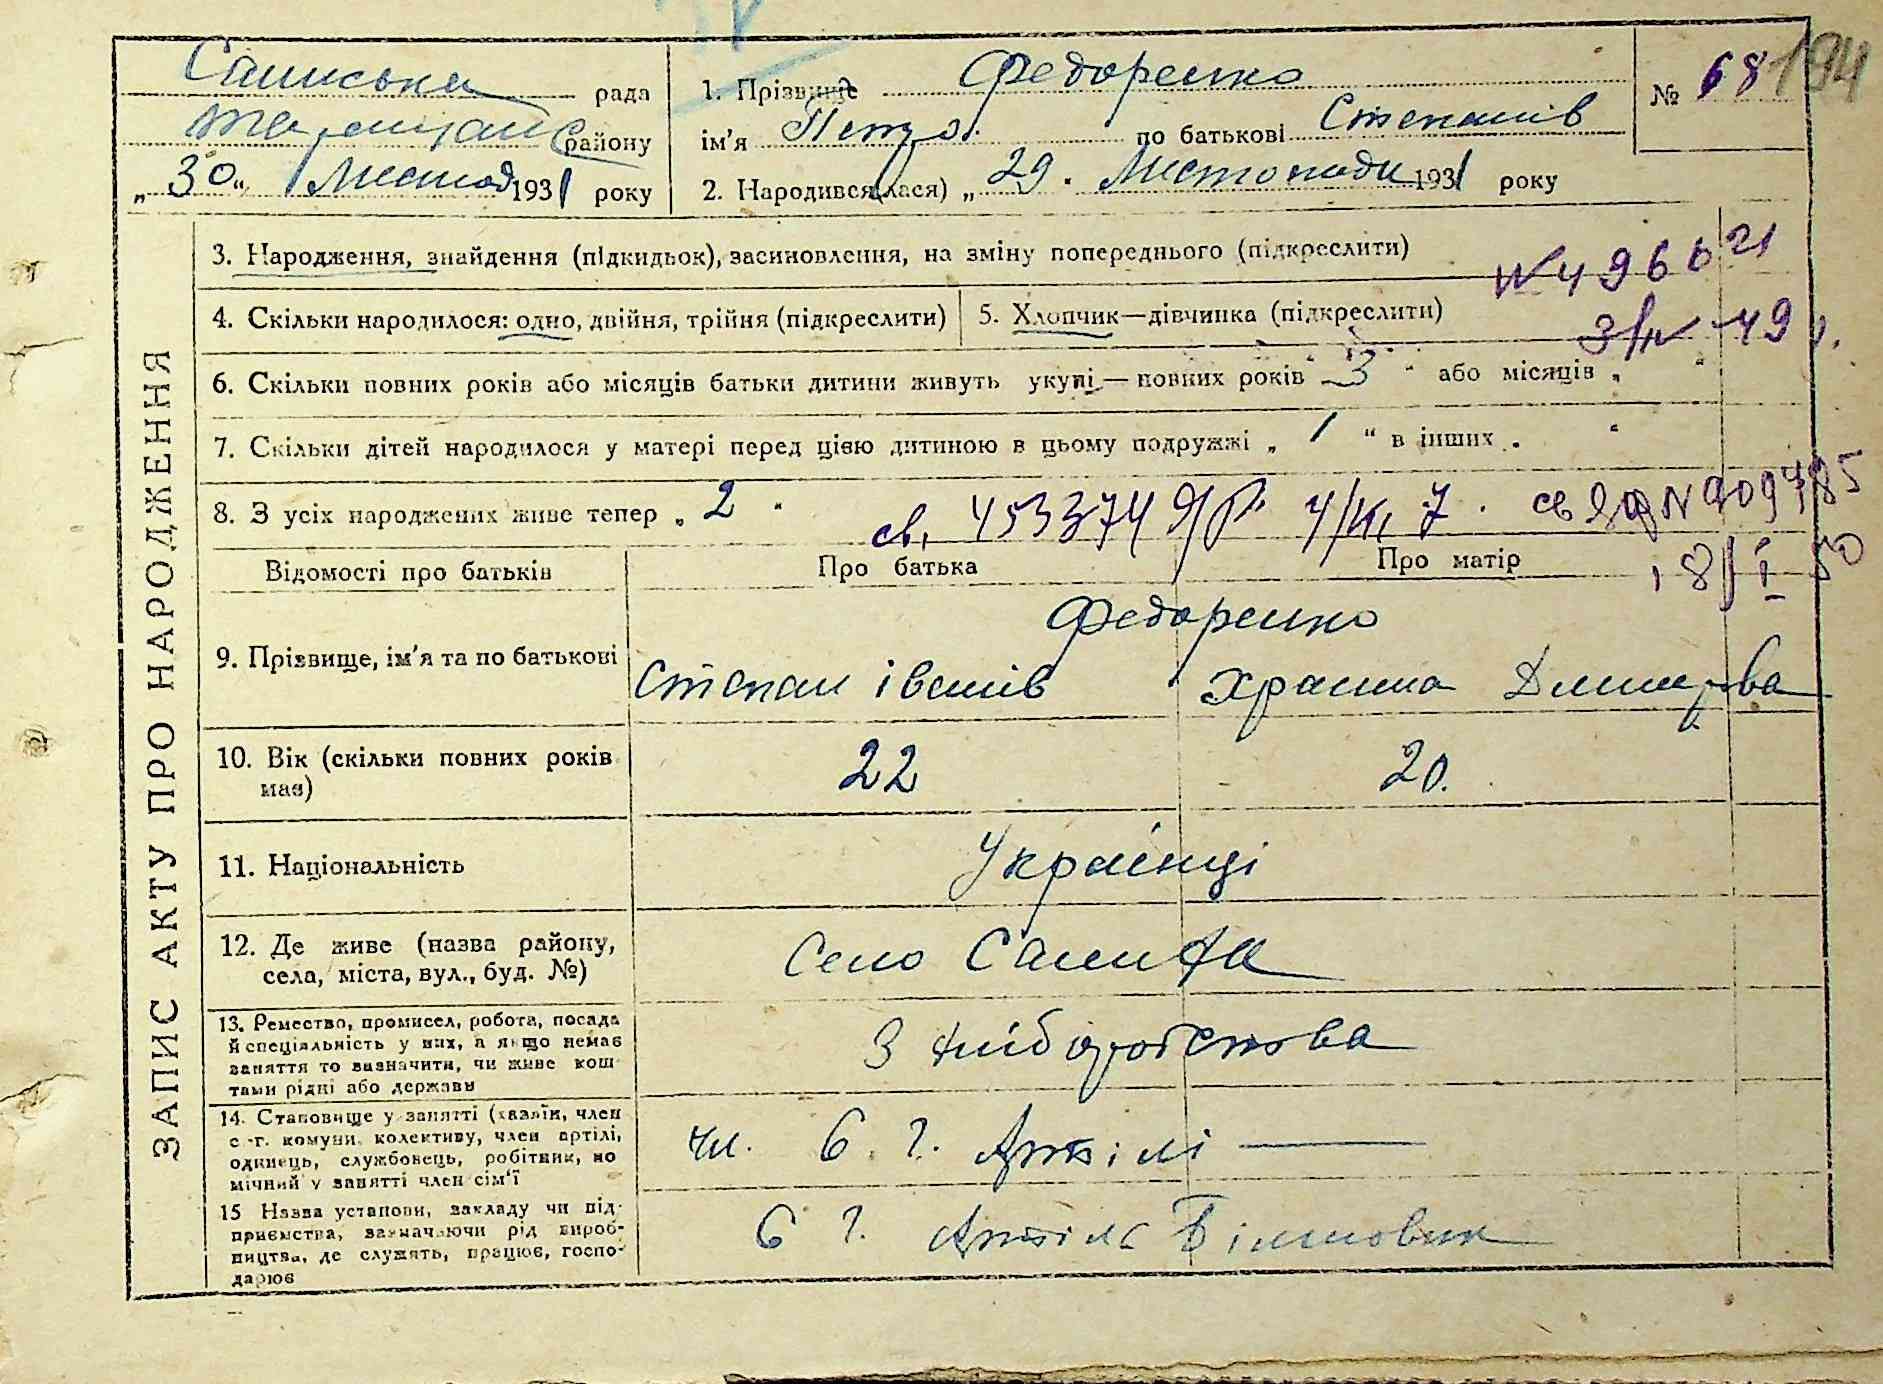 рада
району
„30“ Листопад 1931 року
1. Прізвище Федоренко
ім'я Петро по батькові Степанів
2. Народився(лася) „29“ Листопада 1931 року
№ 68 194
ЗАПИС АКТУ ПРО НАРОДЖЕННЯ
3. Народження, знайдення (підкидьок), засиновлення, на зміну попереднього (підкреслити)
4. Скільки народилося: одно, двійня, трійня (підкреслити)
5. Хлопчик—дівчинка (підкреслити)
6. Скільки повних років або місяців батьки дитини живуть укупі — повних років „3“ або місяців „ “
7. Скільки дітей народилося у матері перед цією дитиною в цьому подружжі „1“ в інших „ “
8. З усіх народжених живе тепер „2“
св. 453374
Відомості про батьків
Про батька
Про матір
18/I 50
9. Прізвище, ім'я та по батькові
Федоренко
Степан Іванів
10. Вік (скільки повних років має)
22
20.
11. Національність
Українці
12. Де живе (назва району,
села, міста, вул., буд. №)
Село
13. Ремество, промисел, робота, посада
й спеціяльність у них, а якщо немає
заняття то визначити, чи живе кош-
тами рідні або держави
З хліборобства
14. Становище у занятті (хазяїн, член
с.-г. комуни, колективу, член артілі,
одинець, службовець, робітник, по
мічний у занятті член сім'ї
чл. С. Г. Артілі
15 Назва установи, закладу чи під-
приємства, зазначаючи рід вироб-
ництва, де служить, працює, госпо-
дарює
С Г. Артіль Більшовик